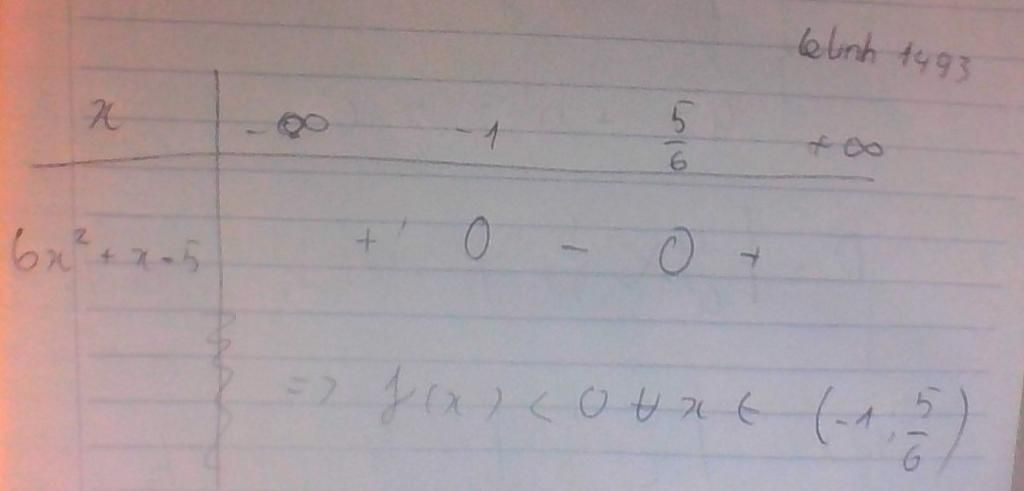 lelinh 1493
x -∞ -1 5/6 +∞
6x² + x - 5 + 0 - 0 +
=> f(x) < 0 ∀ x ∈ (-1, 5/6)